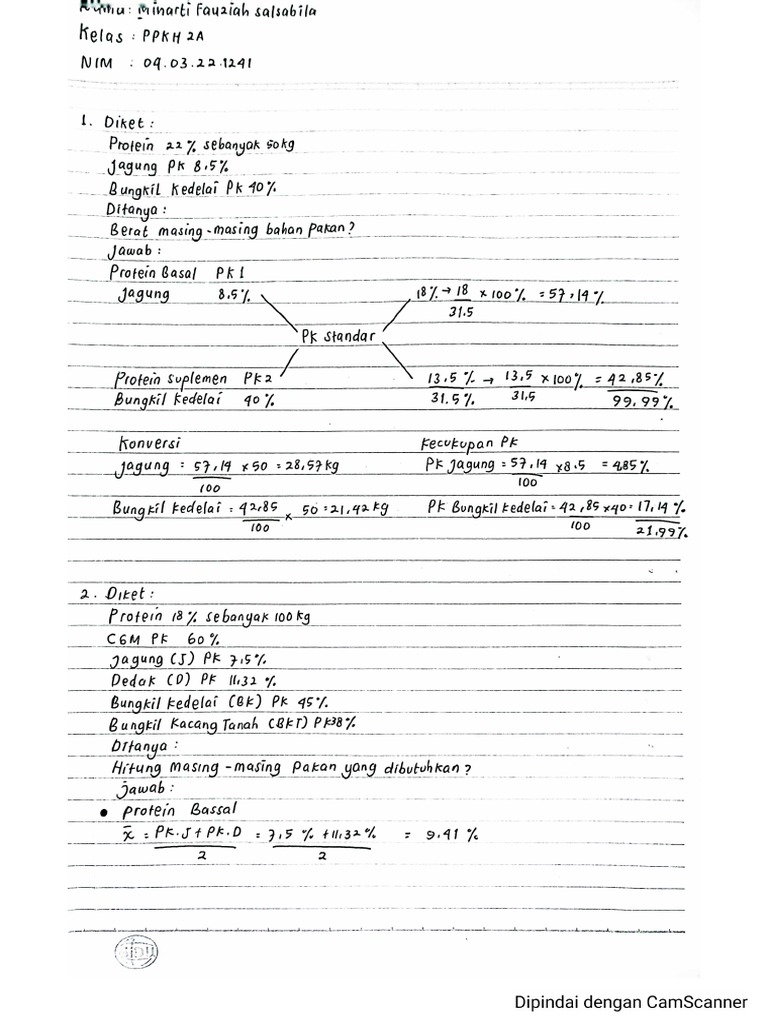 Nama: Minarti Fauziah Salsabila
Kelas : PPKH 2A
NIM : 04.03.22.1241
1. Diket :
Protein 22% sebanyak 50kg
Jagung PK 8,5%
Bungkil Kedelai PK 40%
Ditanya :
Berat masing-masing bahan pakan?
Jawab :
Protein Basal PK1
Jagung 8.5% 18% → 18/31.5 × 100% = 57,14%
PK Standar
Protein Suplemen PK2 13.5%/31.5% → 13,5/31,5 × 100% = 42,85%
Bungkil Kedelai 40% 99.99%
Konversi Kecukupan PK
Jagung : 57,14/100 × 50 = 28,57kg PK Jagung = 57,14/100 × 8.5 = 4,85%
Bungkil Kedelai = 42,85/100 × 50 = 21,42 kg PK Bungkil Kedelai = 42,85/100 × 40 = 17,14%
21,99%
2. Diket :
Protein 18% sebanyak 100kg
CGM PK 60%
Jagung (J) PK 7,5%
Dedak (D) PK 11,32 %
Bungkil Kedelai (BK) PK 45%
Bungkil Kacang Tanah (BKT) PK 38%
Ditanya :
Hitung masing-masing Pakan yang dibutuhkan?
Jawab :
• Protein Bassal
x̄ = PK.J + PK.D/2 = 7,5 % + 11,32 %/2 = 9.41 %
Dipindai dengan CamScanner